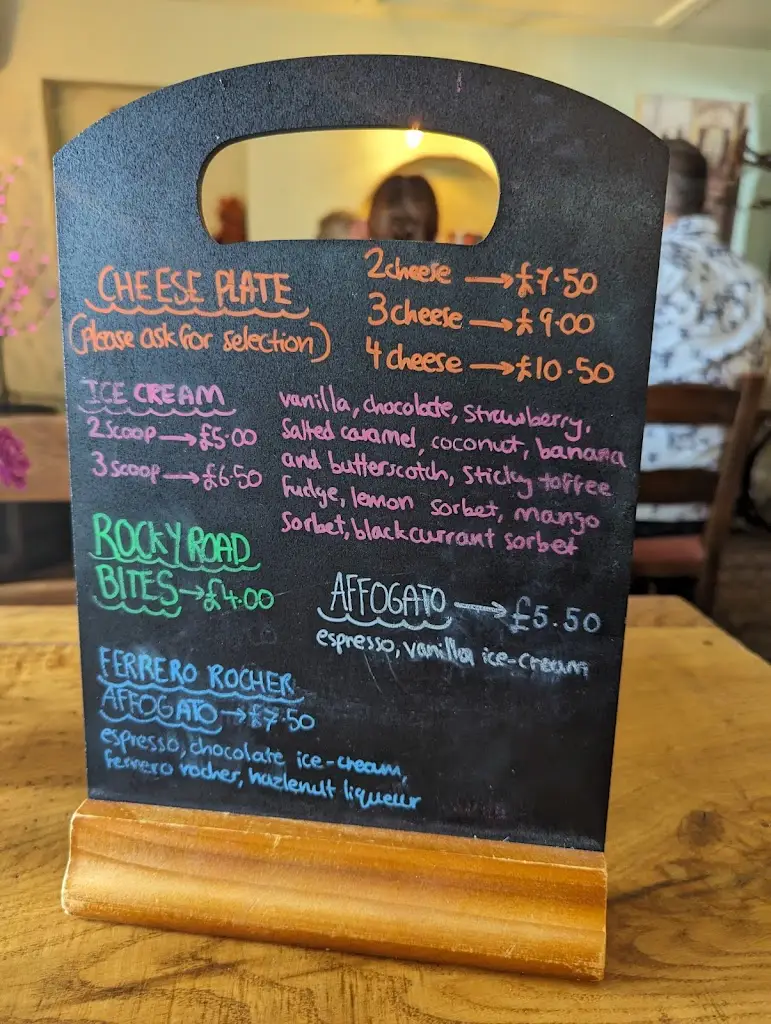 CHEESE PLATE
(Please ask for selection)
2 cheese → £7.50
3 cheese → £9.00
4 cheese → £10.50
ICE CREAM
2 scoop → £5.00
3 scoop → £6.50
vanilla, chocolate, strawberry,
salted caramel, coconut, banana
and butterscotch, sticky toffee
fudge, lemon sorbet, mango
sorbet, blackcurrant sorbet
ROCKY ROAD
BITES → £4.00
AFFOGATO → £5.50
espresso, vanilla ice-cream
FERRERO ROCHER
AFFOGATO → £7.50
espresso, chocolate ice-cream,
ferrero rocher, hazlenult liqueur